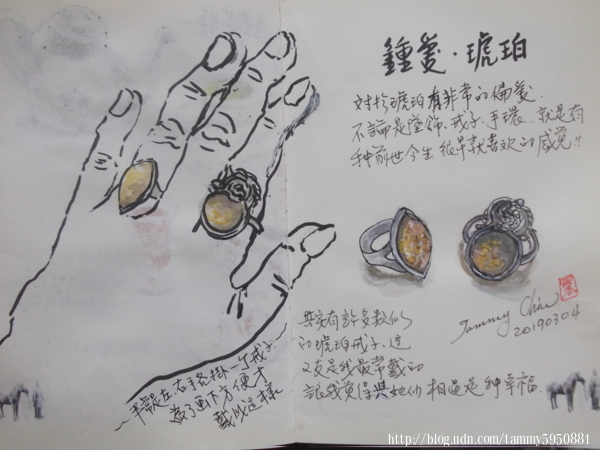 鍾愛·琥珀
對於琥珀有非常的偏愛.
不論是墜飾、戒子、手環、就是有
種前世今生很早就喜歡的感覺!!
Tammy Chiu
20190304
其實有許多類似
的琥珀戒子、這
2支是我最常戴的
說感覺得與她們相遇是種幸福.
平常是左右手各掛一个戒子
為了画下方便才
戴成這樣
http://blog.udn.com/tammy5950881